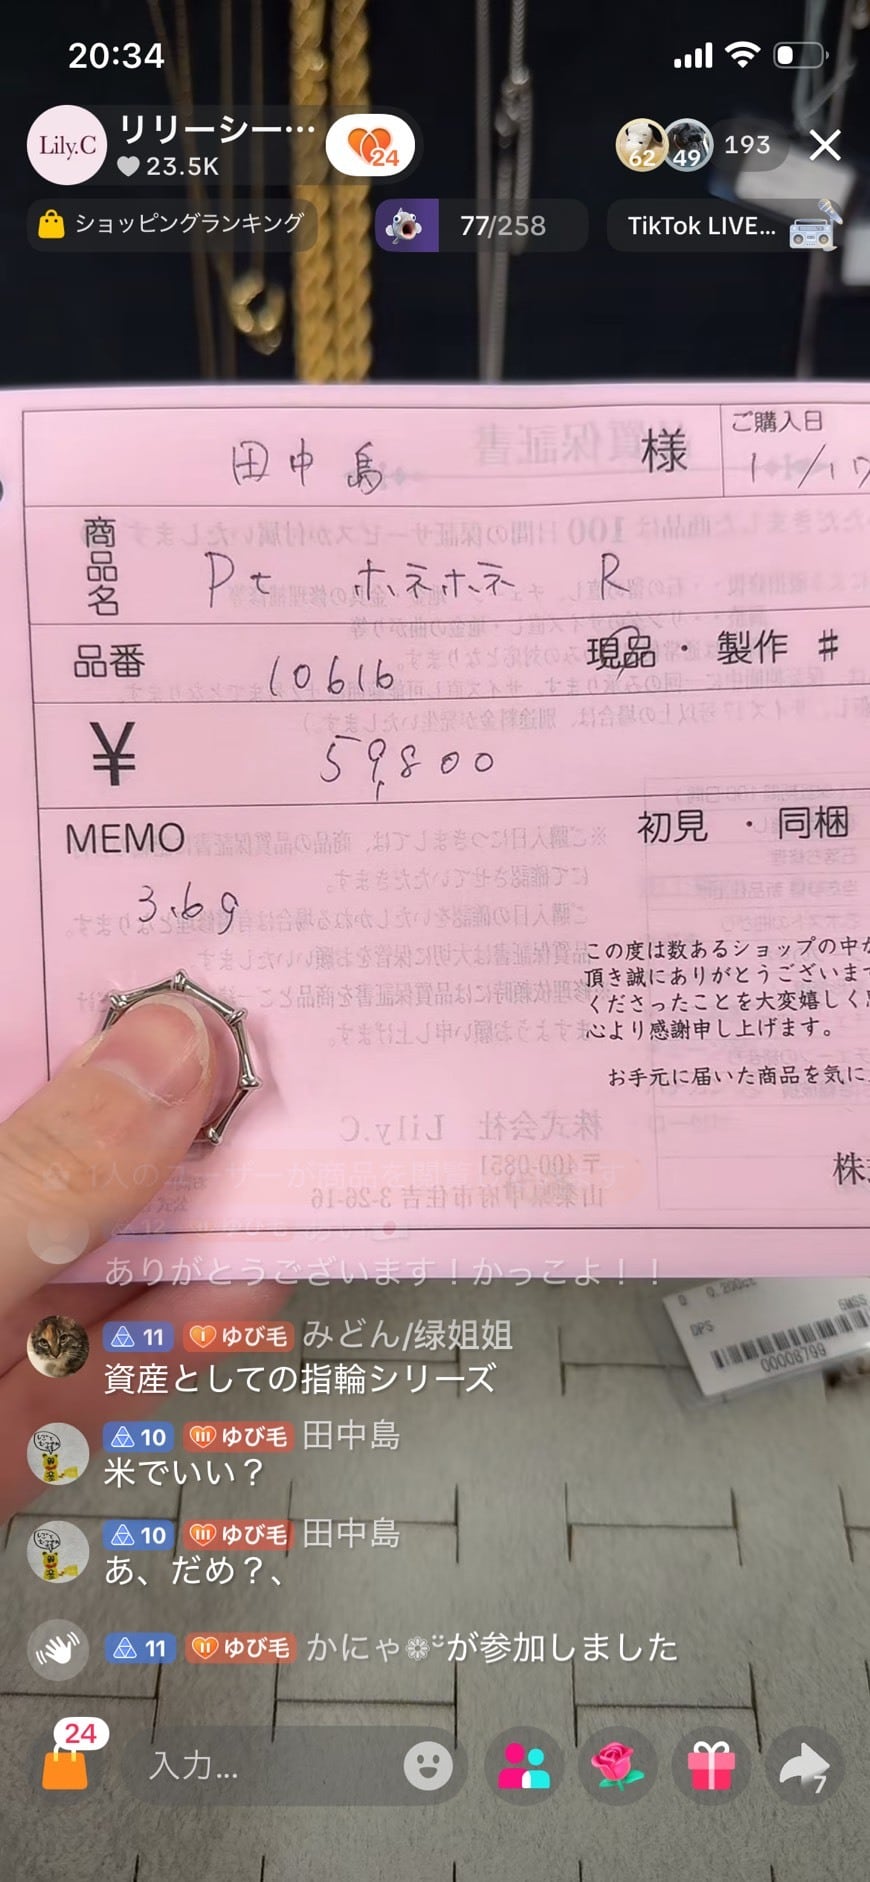 20:34
Lily.C
リリーシー…
23.5K
24
62
49
193
ショッピングランキング
77/258
TikTok LIVE…
田中島
様
ご購入日
1/17
商品名
Pt ホネホネ R
品番
10616
現品・製作 #
¥
59,800
MEMO
初見・同梱
3.6g
この度は数あるショップの中か
頂き誠にありがとうございます
くださったことを大変嬉しく思
心より感謝申し上げます。
お手元に届いた商品を気に
株式
1人のユーザーが商品を閲覧
ありがとうございます！かっこよ！！
0.200ct
DPS
00008799
11 ゆび毛 みどん/绿姐姐
資産としての指輪シリーズ
10 ゆび毛 田中島
米でいい？
10 ゆび毛 田中島
あ、だめ？、
11 ゆび毛 かにゃ❁が参加しました
24
入力...
7